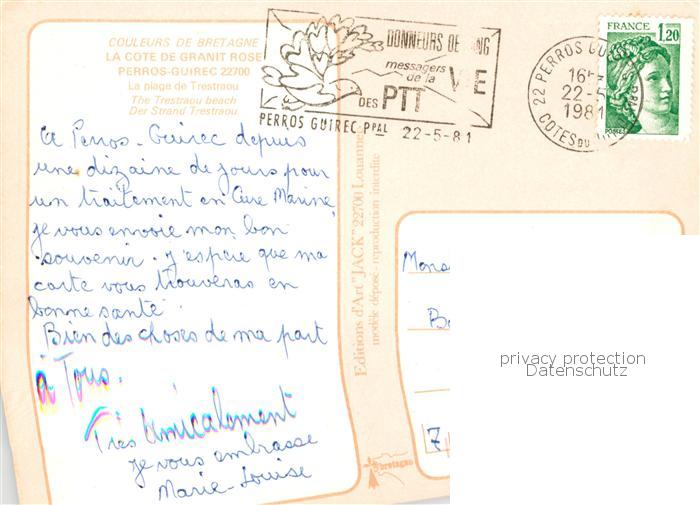 COULEURS DE BRETAGNE
LA COTE DE GRANIT ROSE
PERROS-GUIREC 22700
La plage de Trestraou
The Trestraou beach
Der Strand Trestraou
DONNEURS DE
messagers
de la VIE
DES PTT
PERROS GUIREC PPAL 22-5-81
22 PERROS GU
22-5
1981
COTES DU
FRANCE
1,20
POSTES
A Perros-Guirec depuis
une dizaine de jours pour
un traitement en Cure Marine
je vous envoie mon bon
souvenir. J'espère que ma
carte vous trouveras en
bonne santé
Bien des choses de ma part
à Tous.
Très Amicalement
je vous embrasse
Marie-Louise
Editions d'Art "JACK" 22700 Louannec
modèle déposé - reproduction interdite
Bretagne
privacy protection
Datenschutz